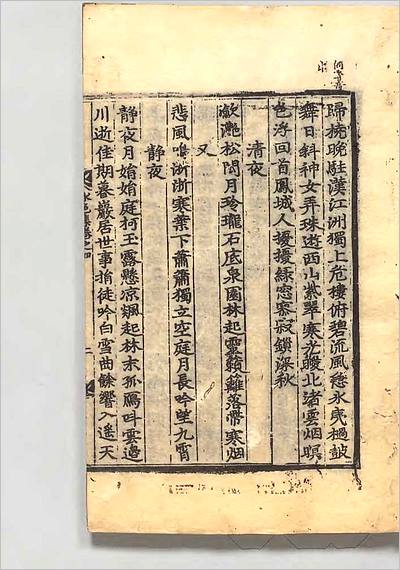 歸橈晚駐漢江洲獨上危樓俯碧流風急水
舞日斜神女弄珠遊西山紫翠寒光暖北渚雲烟暝
色浮回首鳳城人擾擾綠窓寥寂鎖深秋
清夜
瀲灧松間月玲瓏石底泉園林起靈籟籬落帶寒烟
又
悲風鳴淅淅寒葉下蕭蕭獨立空庭月長吟望九霄
靜夜
靜夜月娟娟庭柯玉露懸凉飇起林末孤鴈叫雲邊
川逝佳期暮巖居世事捐徒吟白雪曲餘響入遥天